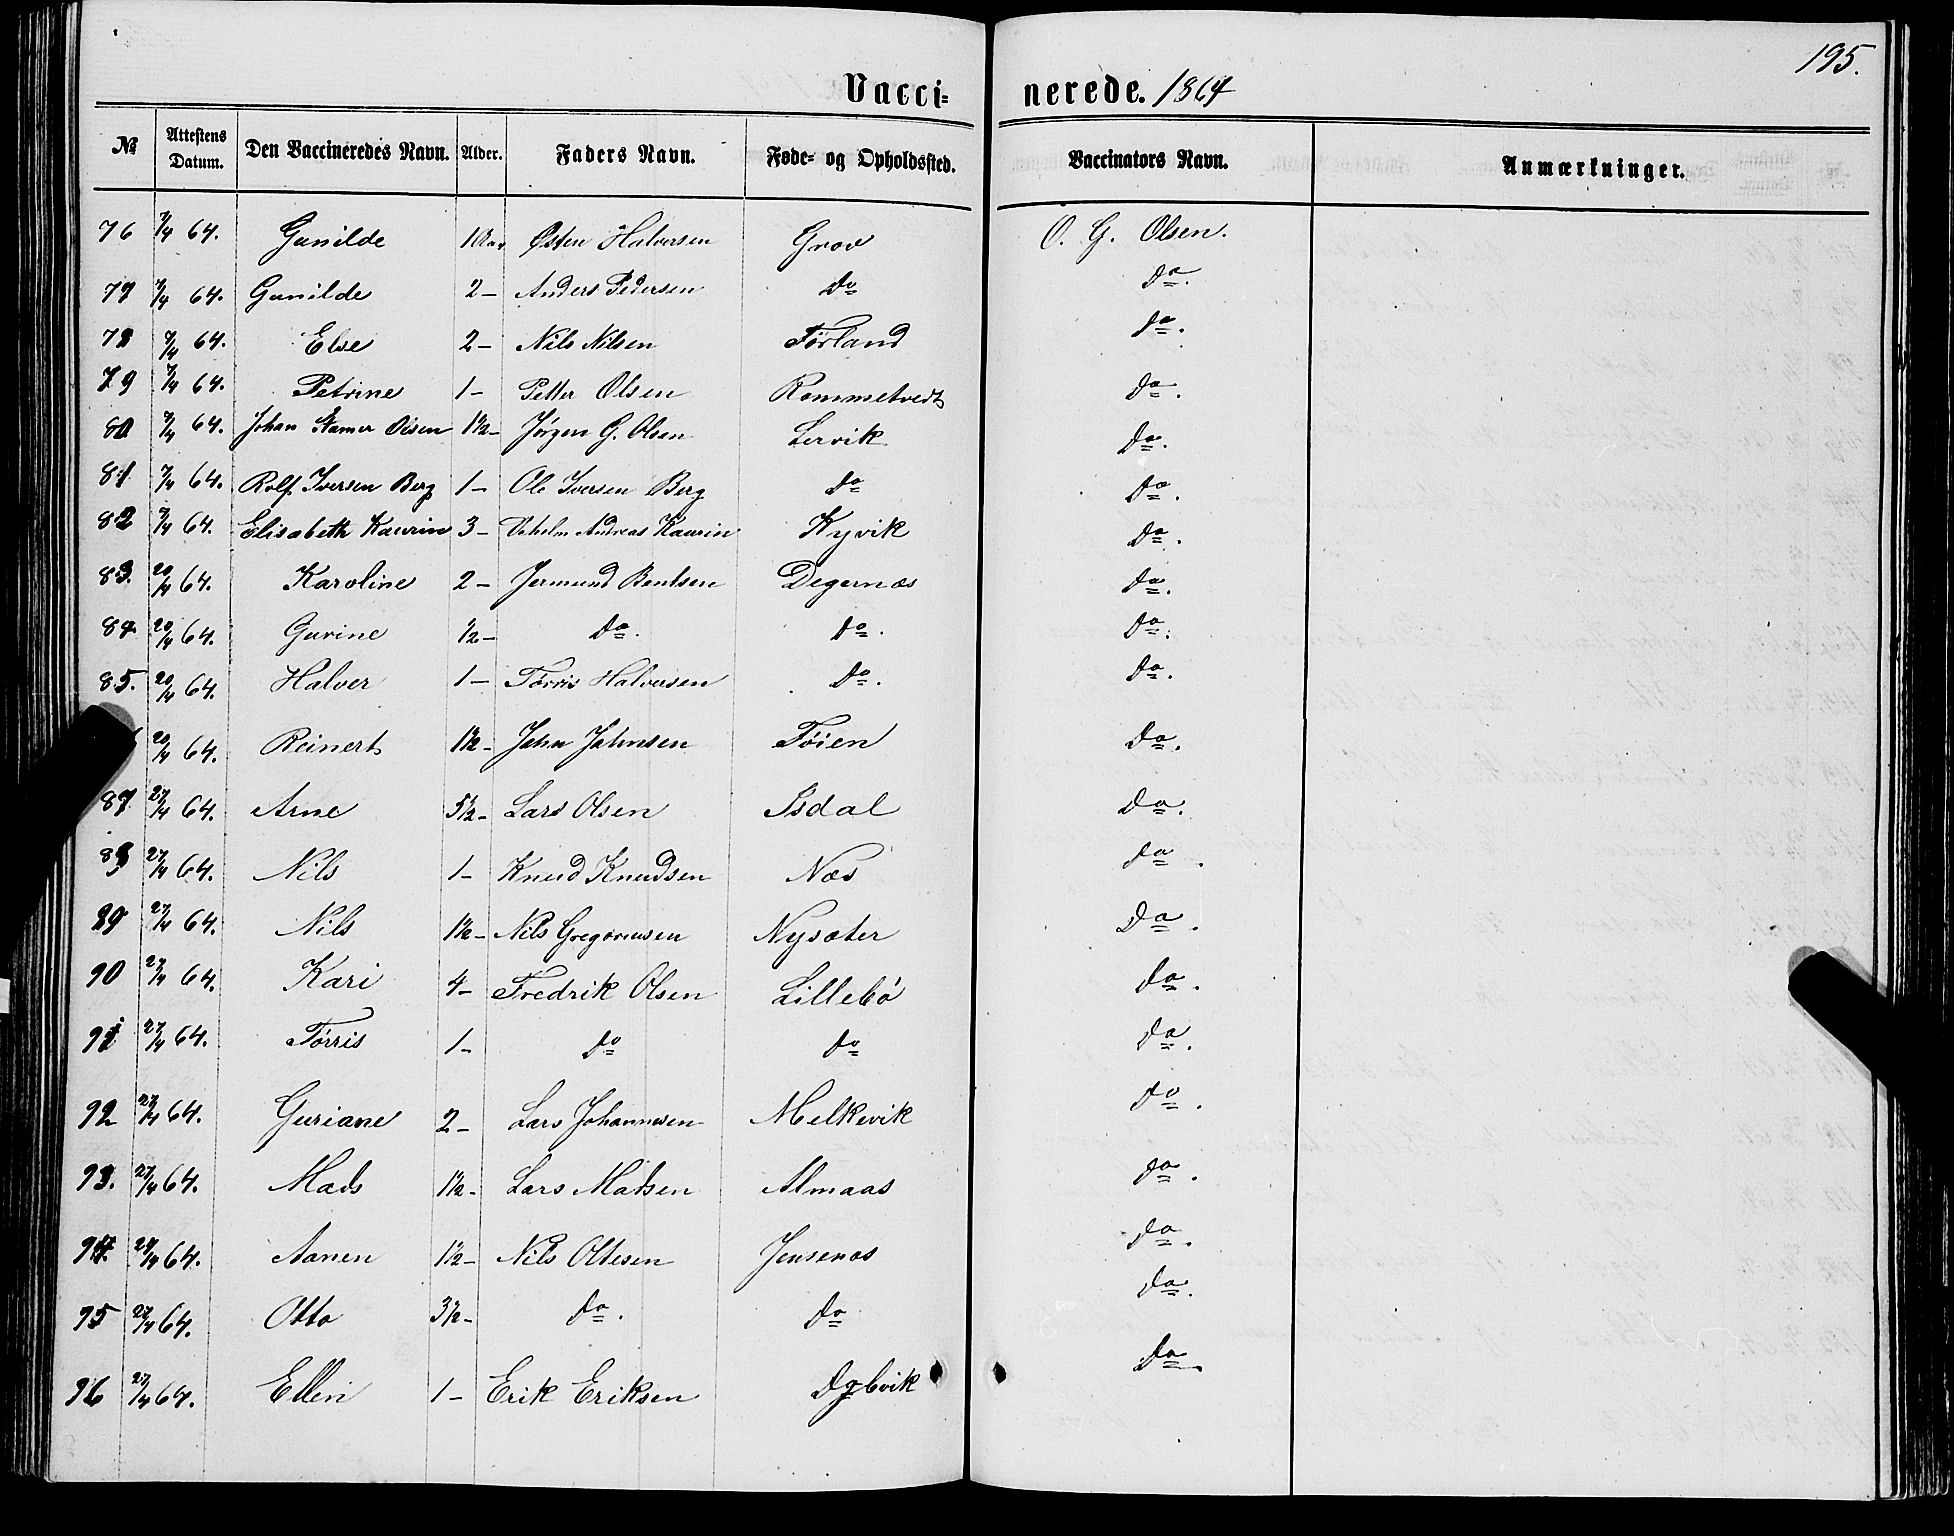 195.
Vacci= nerede. 1864
№ Attestens Datum. Den Vaccineredes Navn. Alder. Faders Navn. Føde= og Opholdssted. Vaccinators Navn. Anmærkninger.
76 7/4 64. Gunilde Østen Halversen Grov O. G. Olsen.
77 7/4 64. Gunilde 2– Anders Pedersen Do Do.
78 7/4 64. Else 2– Nils Nilsen Førland Do.
79 7/4 64. Petrine 1– Petter Olsen Rommetvedt Do.
80 7/4 64. Johan Olsen 1½– Jørgen G. Olsen Lervik Do.
81 7/4 64. Rolf Iversen Berg 1– Ole Iversen Berg Do Do.
82 7/4 64. Elisabeth Kaurin 3– Andreas Kaurin Kyvik Do.
83. 20/4 64. Karoline 2– Jermund Bentsen Degernæs Do.
84 20/4 64. Gurine ½– Do. Do. Do.
85. 20/4 64. Halver 1– Tørris Halversen Do. Do.
20/4 64. Reinert 1½– John Johnsen Tøien Do.
87 27/4 64. Arne 5½– Lars Olsen Isdal Do.
88 27/4 64. Nils 1– Knud Knudsen Næs Do.
89 27/4 64. Nils 1½– Nils Gregoriusen Nysæter Do.
90 27/4 64. Kari 4– Fredrik Olsen Lillebø Do.
91 27/4 64. Tørris 1– Do Do Do.
92 27/4 64. Guriane 2– Lars Johannesen Melkevik Do.
93. 27/4 64. Mads 1½– Lars Madsen Almaas Do.
94. 27/4 64. Aanen 1½– Nils Ottesen Jensenæs Do.
95 27/4 64. Otto 3½– Do. Do Do.
96 27/4 64. Ellen 1– Erik Eriksen Do.